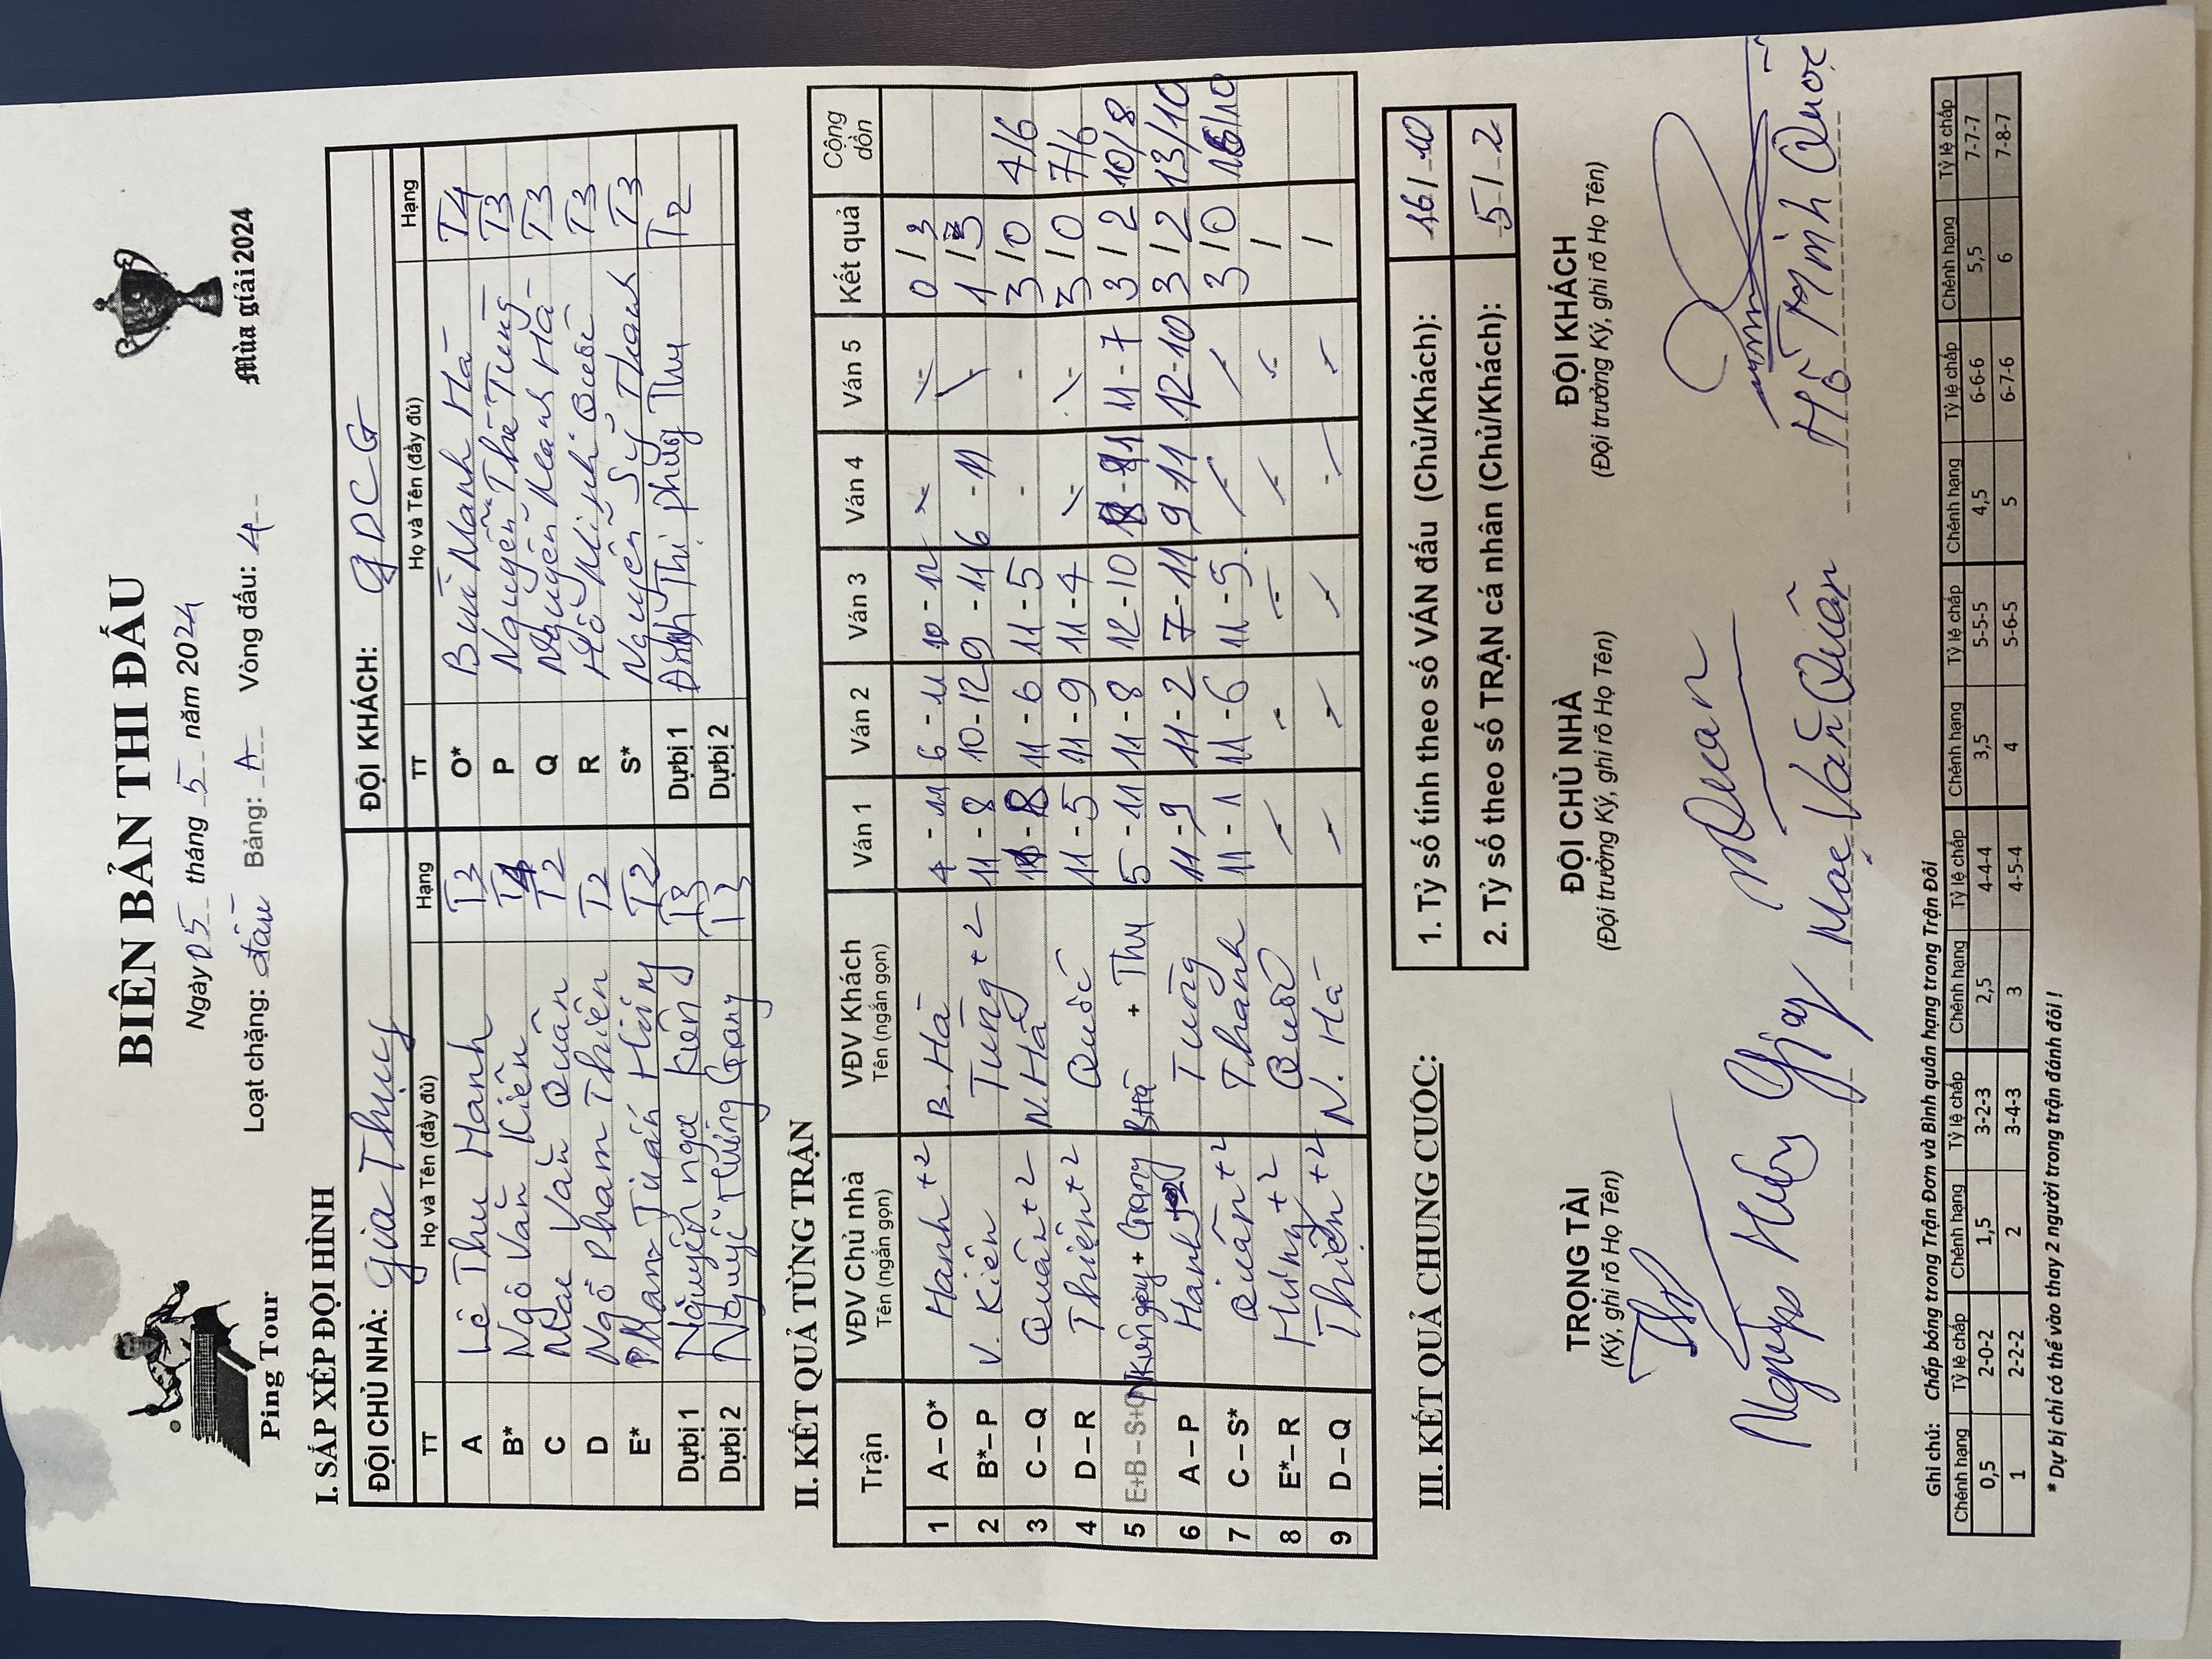 BIÊN BẢN THI ĐẤU
Ngày 05 tháng 5 năm 2024
Loạt chặng: đầu Bảng: A Vòng đấu: 4
Ping Tour
Mùa giải 2024
I. SẮP XẾP ĐỘI HÌNH
ĐỘI CHỦ NHÀ: Gia Thụy ĐỘI KHÁCH: QDCG
TT Họ và Tên (đầy đủ) Hạng TT Họ và Tên (đầy đủ) Hạng
A Lê Thu Hạnh T3 O* Bùi Mạnh Hà T4
B* Ngô Văn Kiên T4 P Nguyễn Thế Tùng T3
C Mạc Văn Quân T2 Q Nguyễn Mạnh Hà T3
D Ngô Phạm Thiên T2 R Hồ Minh Quốc T3
E* Phan Tuấn Hưng T2 S* Nguyễn Sỹ Thanh T3
Dự bị 1 Nguyễn Nga Kiên T3 Dự bị 1 Đinh Thị Phùng Thu T2
Dự bị 2 Nguyễn Hưng Giang T3 Dự bị 2
II. KẾT QUẢ TỪNG TRẬN
Trận VĐV Chủ nhà Tên (ngắn gọn) VĐV Khách Tên (ngắn gọn) Ván 1 Ván 2 Ván 3 Ván 4 Ván 5 Kết quả Cộng dồn
1 A – O* Hạnh +2 B. Hà 4 - 11 6 - 11 10 - 12 - - 0 / 3
2 B* – P V. Kiên Tùng + 2 11 - 8 10 - 12 9 - 11 6 - 11 - 1 / 3
3 C – Q Quân + 2 N. Hà 11 - 8 11 - 6 11 - 5 - - 3 / 0 4/6
4 D – R Thiên + 2 Quốc 11 - 5 11 - 9 11 - 4 - - 3 / 0 7/6
5 E+B – S+O + Giang B Hà + Thu 5 - 11 11 - 8 12 - 10 - 11 11 - 7 3 / 2 10/8
6 A – P Hạnh Tùng 11 - 9 11 - 2 7 - 11 9 - 11 12 - 10 3 / 2 13/10
7 C – S* Quân + 2 Thanh 11 - 1 11 - 6 11 - 5 - - 3 / 0 16/10
8 E* – R Hưng + 2 Quốc - - - - - /
9 D – Q Thiên + 2 N. Hà - - - - - /
III. KẾT QUẢ CHUNG CUỘC:
1. Tỷ số tính theo số VÁN đấu (Chủ/Khách): 16 / 10
2. Tỷ số theo số TRẬN cá nhân (Chủ/Khách): 5 / 2
TRỌNG TÀI ĐỘI CHỦ NHÀ ĐỘI KHÁCH
(Ký, ghi rõ Họ Tên) (Đội trưởng Ký, ghi rõ Họ Tên) (Đội trưởng Ký, ghi rõ Họ Tên)
Mạc Văn Quân Hồ Minh Quốc
Ghi chú: Chấp bóng trong Trận Đơn và Bình quân hạng trong Trận Đôi
Chênh hạng Tỷ lệ chấp Chênh hạng Tỷ lệ chấp Chênh hạng Tỷ lệ chấp Chênh hạng Tỷ lệ chấp Chênh hạng Tỷ lệ chấp Chênh hạng Tỷ lệ chấp
0,5 2-0-2 1,5 3-2-3 2,5 4-4-4 3,5 5-5-5 4,5 6-6-6 5,5 7-7-7
1 2-2-2 2 3-4-3 3 4-5-4 4 5-6-5 5 6-7-6 6 7-8-7
* Dự bị chỉ có thể vào thay 2 người trong trận đánh đôi !